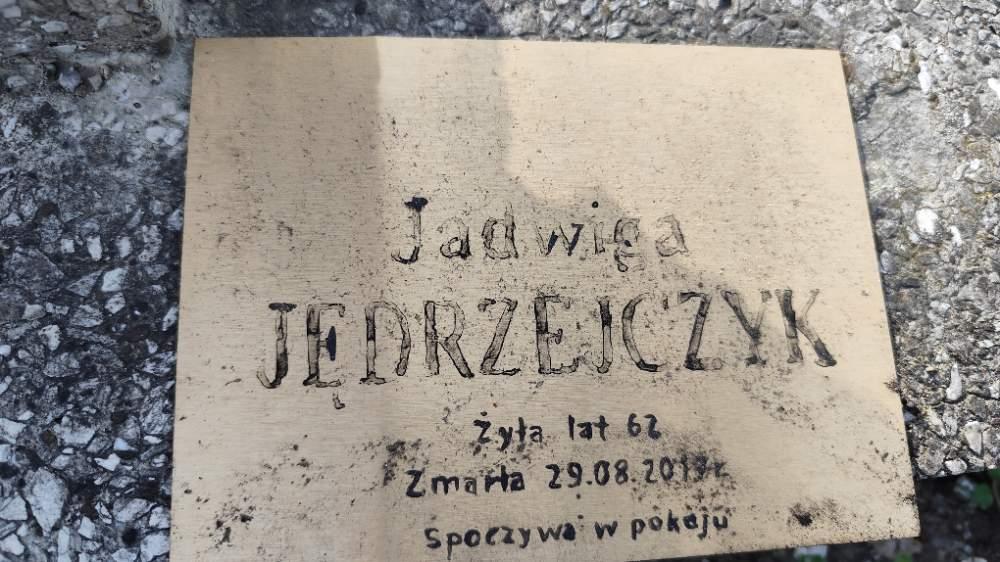 Jadwiga
JĘDRZEJCZYK
Żyła lat 62
Zmarła 29.08.2019r.
Spoczywa w pokoju